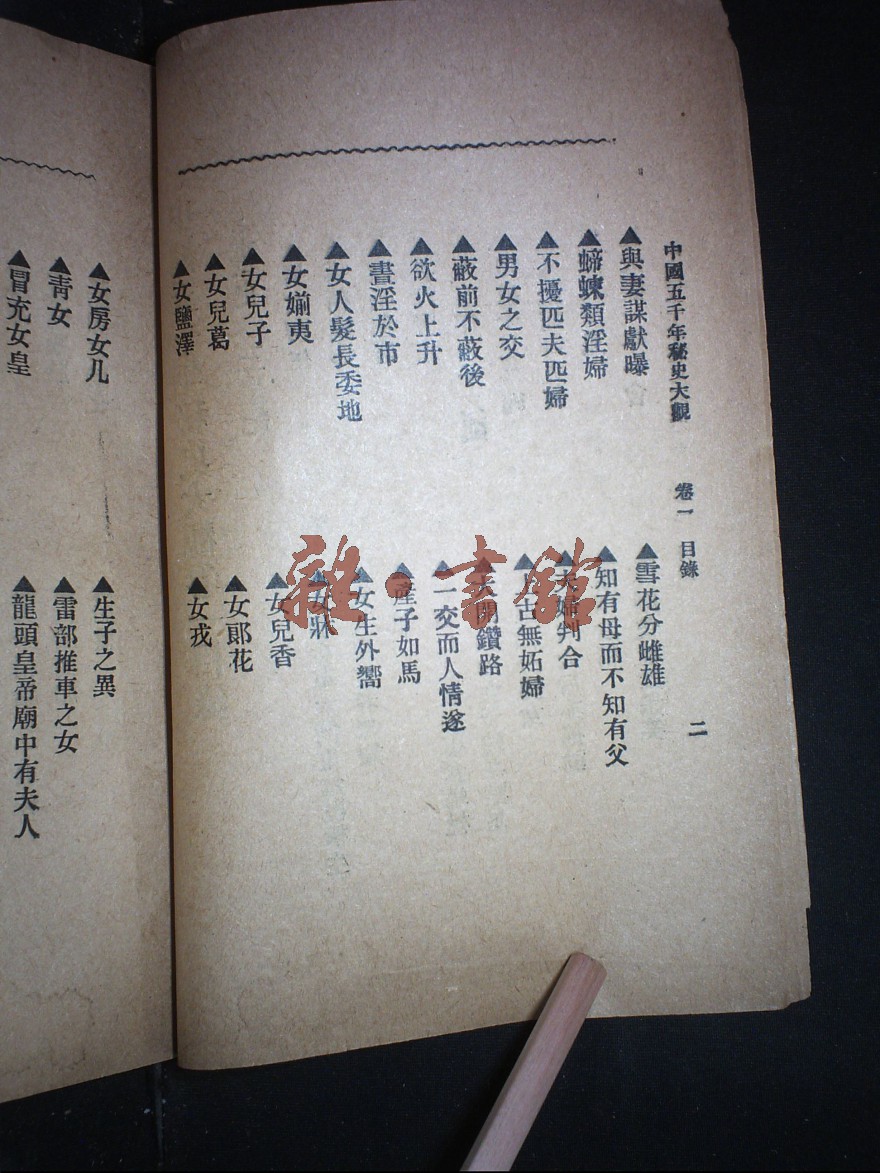 中國五千年秘史大觀 卷一 目錄 二
▲與妻謀獻曝
▲蝃蝀類淫婦
▲不擾匹夫匹婦
▲男女之交
▲蔽前不蔽後
▲欲火上升
▲晝淫於市
▲女人髮長委地
▲女媊夷
▲女兒子
▲女兒葛
▲女鹽澤
▲雪花分雌雄
▲知有母而不知有父
▲夫婦判合
▲上古無妬婦
▲大開鑽路
▲一交而人情遂
▲產子如馬
▲女生外嚮
▲女牀
▲女兒香
▲女郎花
▲女戎
▲女房女几
▲靑女
▲冒充女皇
▲生子之異
▲雷部推車之女
▲龍頭皇帝廟中有夫人
雜·書館